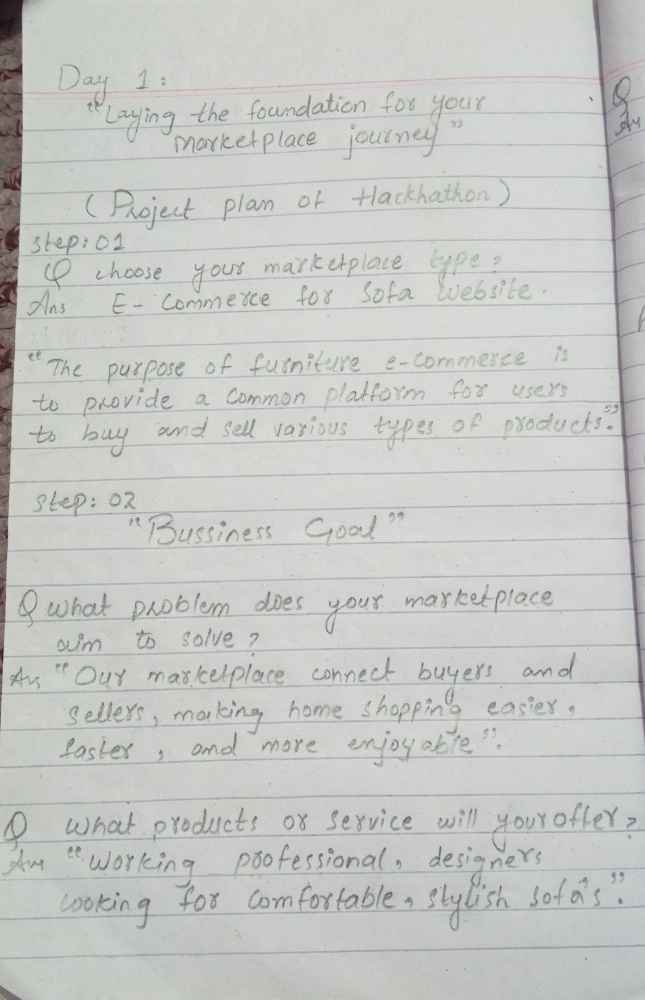 Day 1:
"Laying the foundation for your
marketplace journey"
(Project plan of Hackhathon)
Step: 01
Q choose your marketplace type?
Ans E-Commerce for Sofa Website.
"The purpose of furniture e-commerce is
to provide a common platform for users
to buy and sell various types of products".
Step: 02
"Bussiness Goal"
Q what problem does your marketplace
aim to solve?
Ans "Our marketplace connect buyers and
sellers, making home shopping easier,
faster, and more enjoyable".
Q What products or service will your offer?
Ans "Working professional, designers
looking for comfortable, stylish sofa's".
Q
Ans